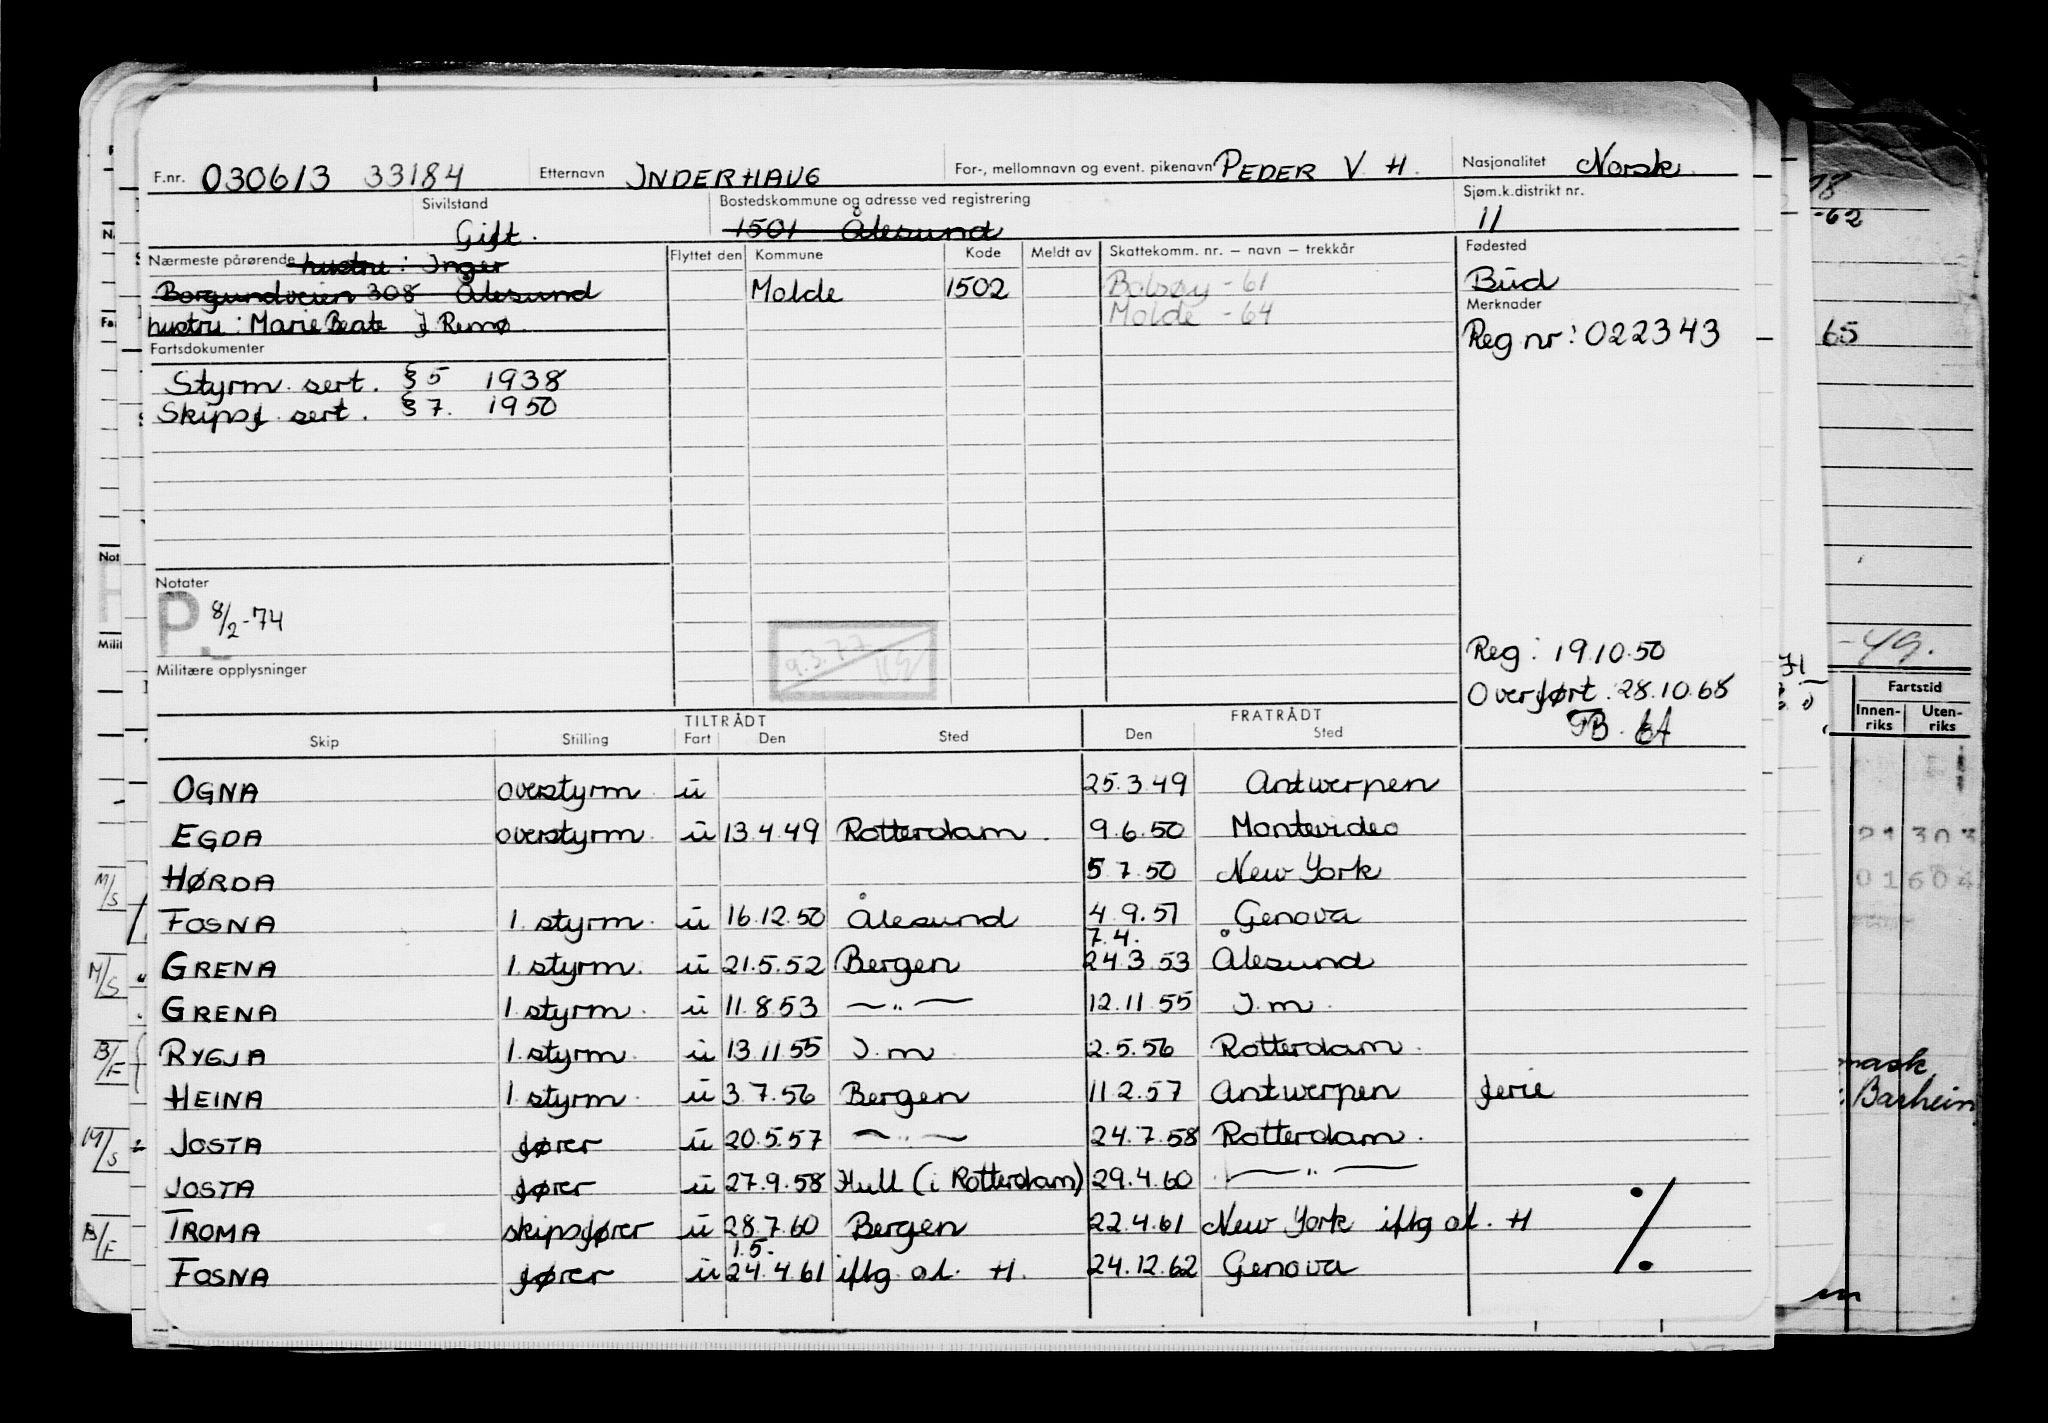 F.nr. 030613 33184 Etternavn INDERHAUG For-, mellomnavn og event. pikenavn PEDER V. H. Nasjonalitet Norsk.
Sivilstand Gift. Bostedskommune og adresse ved registrering 1501 Ålesund Sjøm.k.distrikt nr. 11
Nærmeste pårørende hustru: Inger Flyttet den Kommune Kode Meldt av Skattekomm. nr. – navn – trekkår Fødested
Borgundveien 308 Ålesund Molde 1502 Bolsøy - 61 Bud
hustru: Marie Beate J. Remø. Molde - 64 Merknader
Fartsdokumenter Reg nr: 022343
Styrm. sert. § 5 1938
Skipsf. sert. § 7. 1950
Notater
P. 8/2-74
9.3.77
Militære opplysninger
Reg: 19.10.50
Overført: 28.10.68
TILTRÅDT FRATRÅDT
Skip Stilling Fart Den Sted Den Sted
OGNA overstyrm. u 25.3.49 Antwerpen
EGDA overstyrm. u 13.4.49 Rotterdam. 9.6.50 Montevideo
HØRDA 5.7.50 New York
FOSNA 1. styrm. u 16.12.50 Ålesund 4.9.51 Genova
7.4.
GRENA 1. styrm. u 21.5.52 Bergen 24.3.53 Ålesund
GRENA 1. styrm. u 11.8.53 — " — 12.11.55 I.m.
RYGJA 1. styrm. u 13.11.55 I.m. 2.5.56 Rotterdam.
HEINA 1. styrm. u 3.7.56 Bergen 11.2.57 Antwerpen ferie
JOSTA fører u 20.5.57 — " — 24.7.58 Rotterdam.
JOSTA fører u 27.9.58 Hull (i Rotterdam) 29.4.60 — " —
TROMA skipsfører u 28.7.60 Bergen 22.4.61 New York iflg al. H
1.5.
FOSNA fører u 24.4.61 iflg al. H. 24.12.62 Genova
-62
65
-49.
Fartstid
Innen-riks Uten-riks
21303
01604
mask
Barhein
M/S
M/S
B/F
M/S
B/F